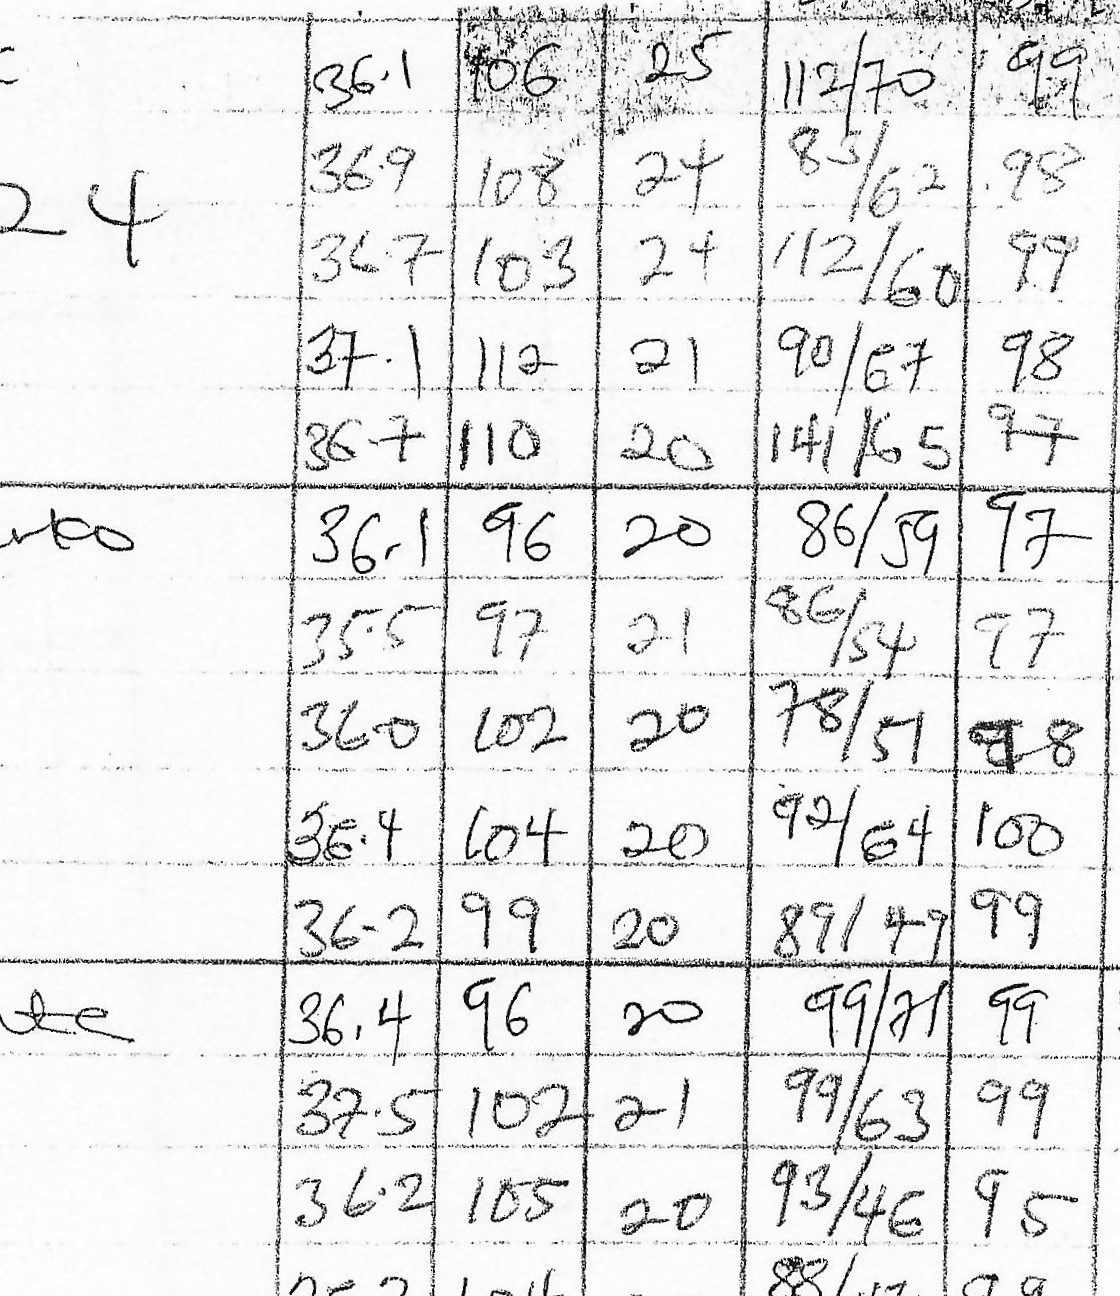 36.1 106 25 112/70 99
36.9 108 24 83/62 98
24
36.7 103 24 112/60 99
37.1 112 21 90/67 98
36.7 110 20 141/65 97
36.1 96 20 86/59 97
35.5 97 21 86/54 97
36.0 102 20 78/51 98
36.4 104 20 92/64 100
36.2 99 20 89/49 99
36.4 96 20 99/71 99
37.5 102 21 99/63 99
36.2 105 20 93/46 95